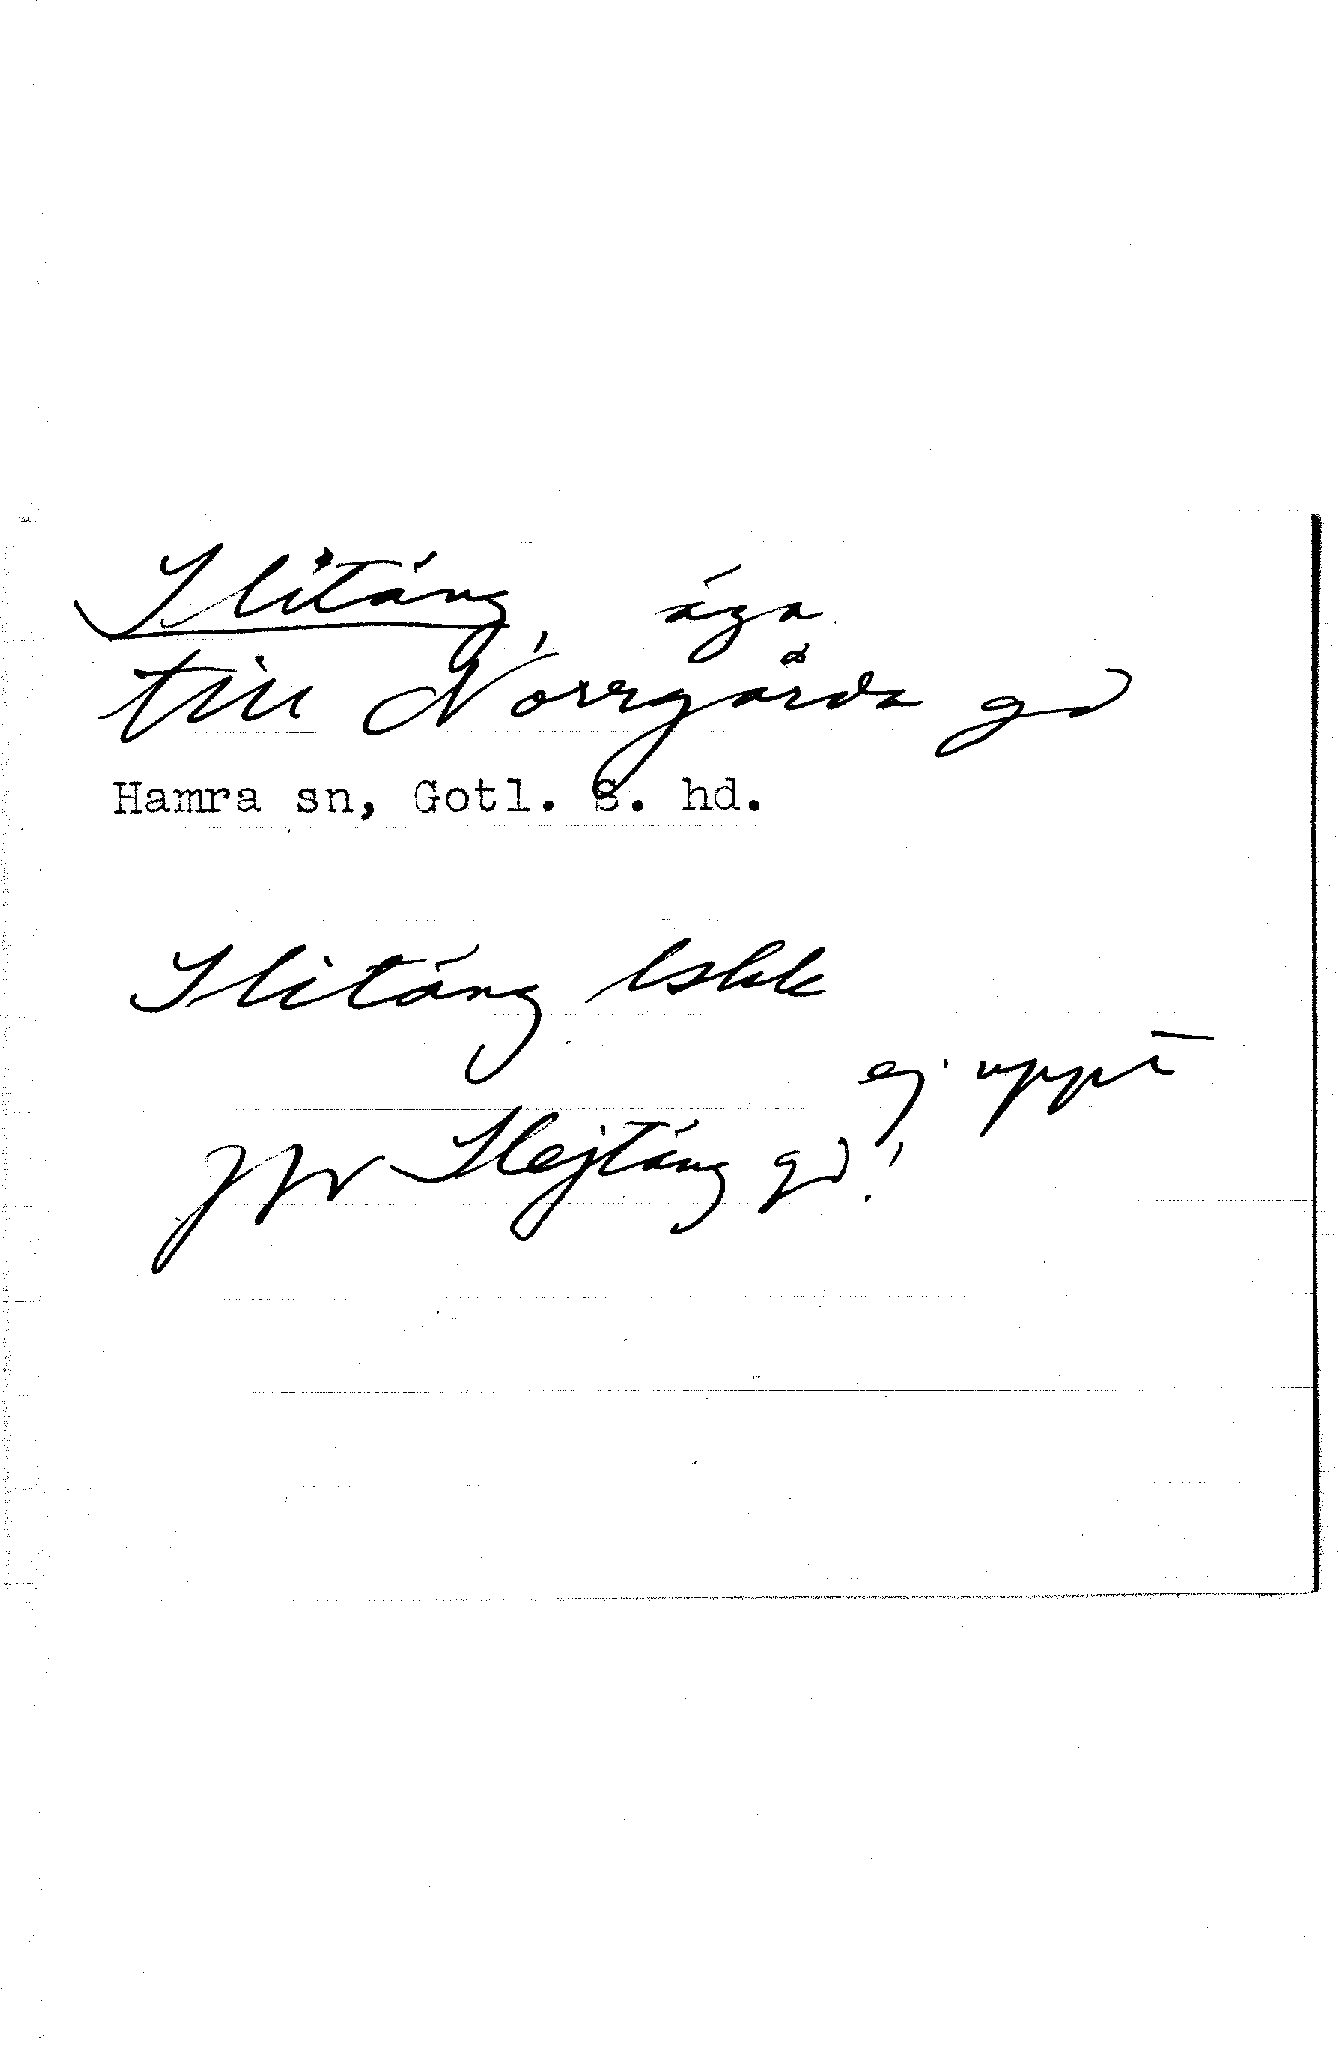 Slitäng, äga
till Norrgårda gd
Hamra sn, Gotl. S. hd.
Slitäng lskk
ej uppt
jfr Slejtäng gd!